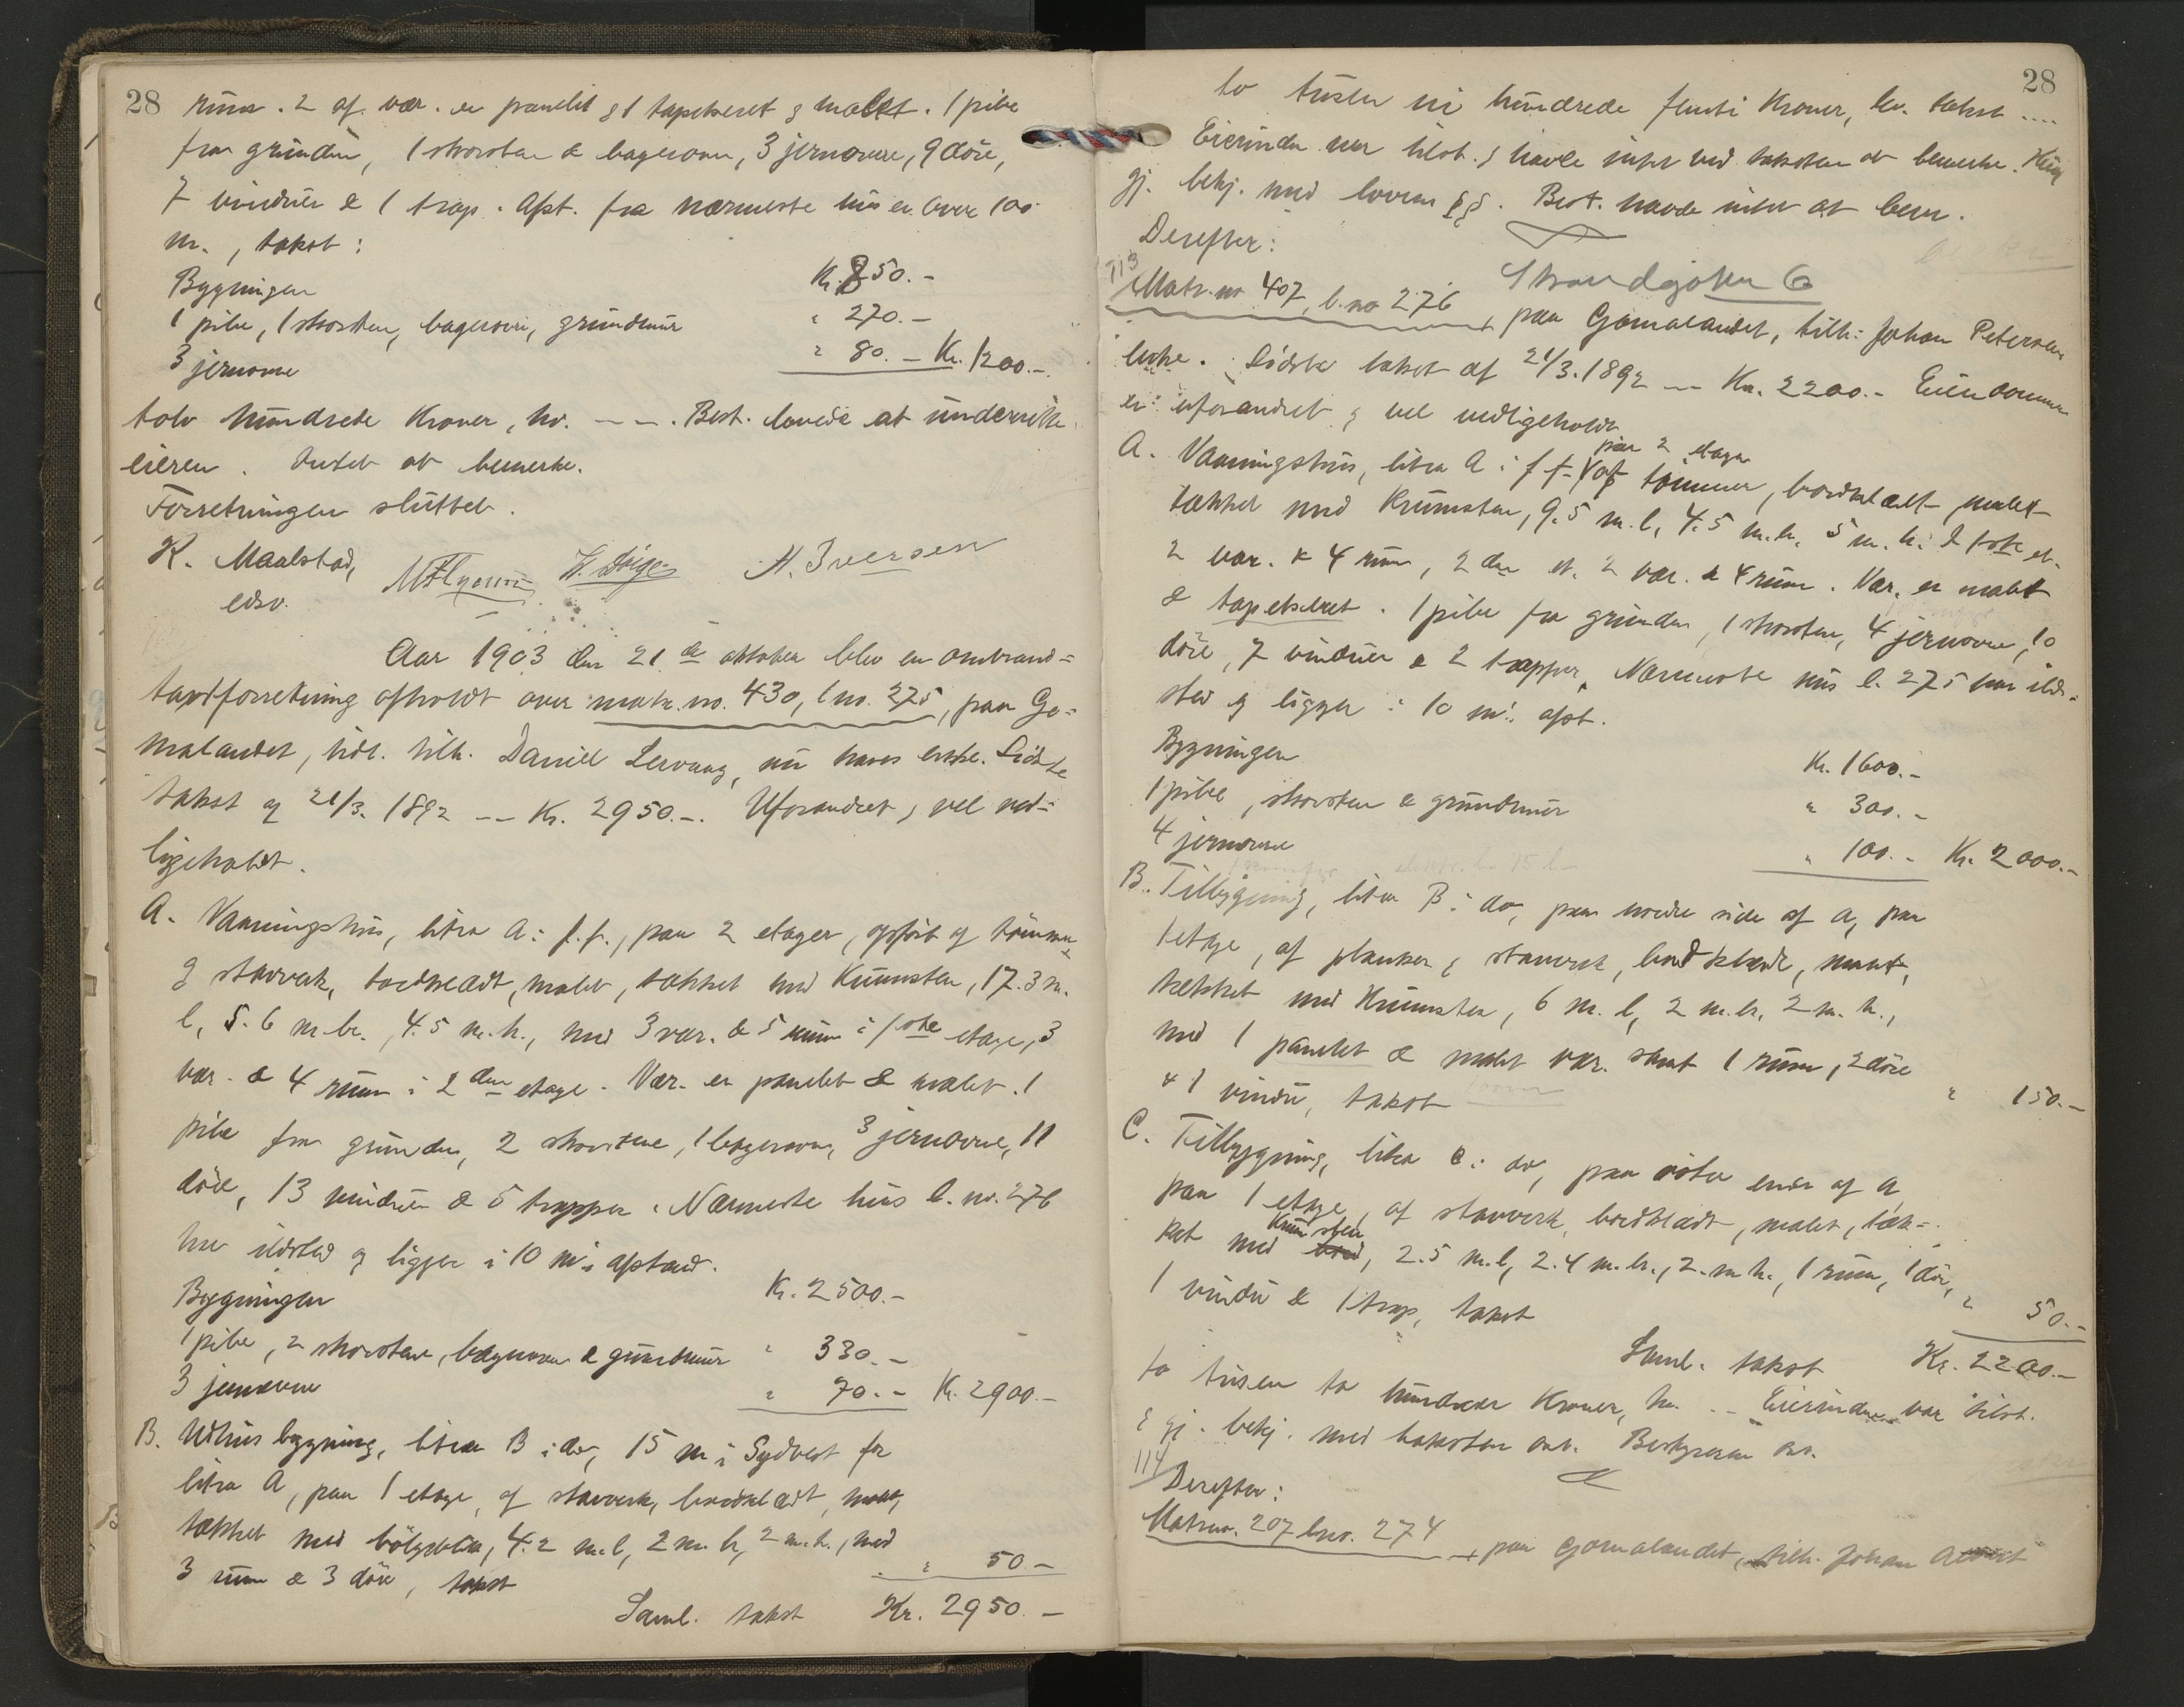 28
rum. 2 af vær. er panelet & 1 tapetseret & malet. 1 pibe
fra grunden, 1 skorsten & bagerovn, 3 jernovne, 9 döre,
7 vinduer & 1 trap. Afst. fra nærmeste hus er over 100
m., takst:
Bygningen Kr. 850.-
1 pibe, 1 skorsten, bagerovn, grundmur " 270.-
3 jernovne " 80.- Kr. 1200.-
tolv hundrede Kroner, hv. -- . Best. lovede at underrette
eieren. Intet at bemerke.
Forretningen sluttet.
K. Maalstad, H. Iversen
edsv.
Aar 1903 den 21de oktober blev en ombrand=
taxtforretning afholdt over matr. no. 430, l no. 275, paa Go=
malandet, tidl. tilh. Daniel Lervaag, nu hans enke. Sidste
takst af 21/3. 1892 -- Kr. 2950.-. Uforandret, vel ved=
ligeholdt.
A. Vaaningshus, litra A: f. f., paa 2 etager, opfört af tömmer
& stavverk, bordklædt, malet, tækket med Krumsten, 17.3 m.
l, 5.6 m. br., 4.5 m. h., med 3 vær. & 5 rum i 1ste etage, 3
vær. & 4 rum i 2den etage. Vær. er panelet & malet. 1
pibe fra grunden, 2 skorstene, 1 bagerovn, 3 jernovne, 11
döre, 13 vinduer & 5 trapper. Nærmeste hus l. no. 276
har ildsted og ligger i 10 m's afstand.
Bygningen Kr. 2500.-
1 pibe, 2 skorstene, bagerovn & grundmur " 330.-
3 jernovne " 70.- Kr. 2900.-
B. Udhusbygning, litra B: do, 15 m i Sydvest for
litra A, paa 1 etage, af stavverk, bordklædt, malet,
tækket med bölgeblik, 4.2 m. l, 2 m. br, 2 m. h., med
3 rum & 3 döre, takst " 50.-
Saml. takst Kr. 2950.-
28
to tusen ni hundrede femti Kroner, hv. takst ....
Eierinden var tilst. & havde intet ved taksten at bemerke. Hun
gj. bekj. med lovens §§. Best. havde intet at bem.
Derefter:
113
Strandgaten 6
Matr. no 407, l. no 276 paa Gomalandet, tilh: Johan Petersens
enke. Sidste takst af 21/3. 1892 -- Kr. 2200.- Eiendommen
er uforandret & vel vedligeholdt
paa 2 etager
A. Vaaningshus, litra A: f. f. af tömmer, bordklædt malet
tækket med Krumsten, 9.5 m. l, 4.5 m. br, 5 m. h. I 1ste et.
2 vær. & 4 rum, 2den et. 2 vær. & 4 rum. Vær. er malet
& tapetseret. 1 pibe fra grunden, 1 skorsten, 4 jernovne, 10
döre, 7 vinduer & 2 trapper. Nærmeste hus l. 275 har ild=
sted og ligger i 10 m's afst.
Bygningen Kr. 1600.-
1 pibe, skorsten & grundmur " 300.-
4 jernovne " 100.- Kr. 2000.-
B. Tilbygning, litra B: do, paa nordre side af A, paa
1 etage, af planker & stavverk, bordklædt, malet,
tækket med Krumsten, 6 m. l, 2 m. br, 2 m. h.,
med 1 panelet & malet vær. samt 1 rum, 2 döre
& 1 vindu, takst " 150.-
C. Tilbygning, litra C: do, paa östre ende af A
paa 1 etage, af stavverk, bordklædt, malet, tæk=
Krumsten
ket med, 2.5 m. l, 2.4 m. br., 2 m h., 1 rum, 1 dör,
1 vindu & 1 trap, takst " 50.-
Saml. takst Kr. 2200.-
to tusen to hundrede Kroner, hv. -- Eierinden var tilst.
& gj. bekj. med taksten osv. Bestyreren osv.
114
Derefter:
Matr no. 207 l no. 274 paa Gomalandet, tilh. Johan